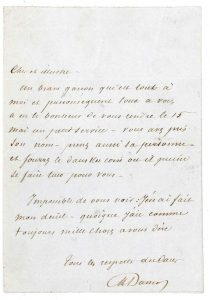 Cher et illustre
Un brave garçon qui est tout à
moi et par conséquent tout à vous
a eu le bonheur de vous rendre le 15
mai un petit service – vous avez pris
son nom – prenez aussi la personne
et fourrez le dans un coin où il puisse
se faire tuer pour vous –
Impossible de vous voir : j'en ai fait
mon deuil – quoique j'aie comme
toujours mille choses à vous dire
Tous les respects du cœur
Al Dumas